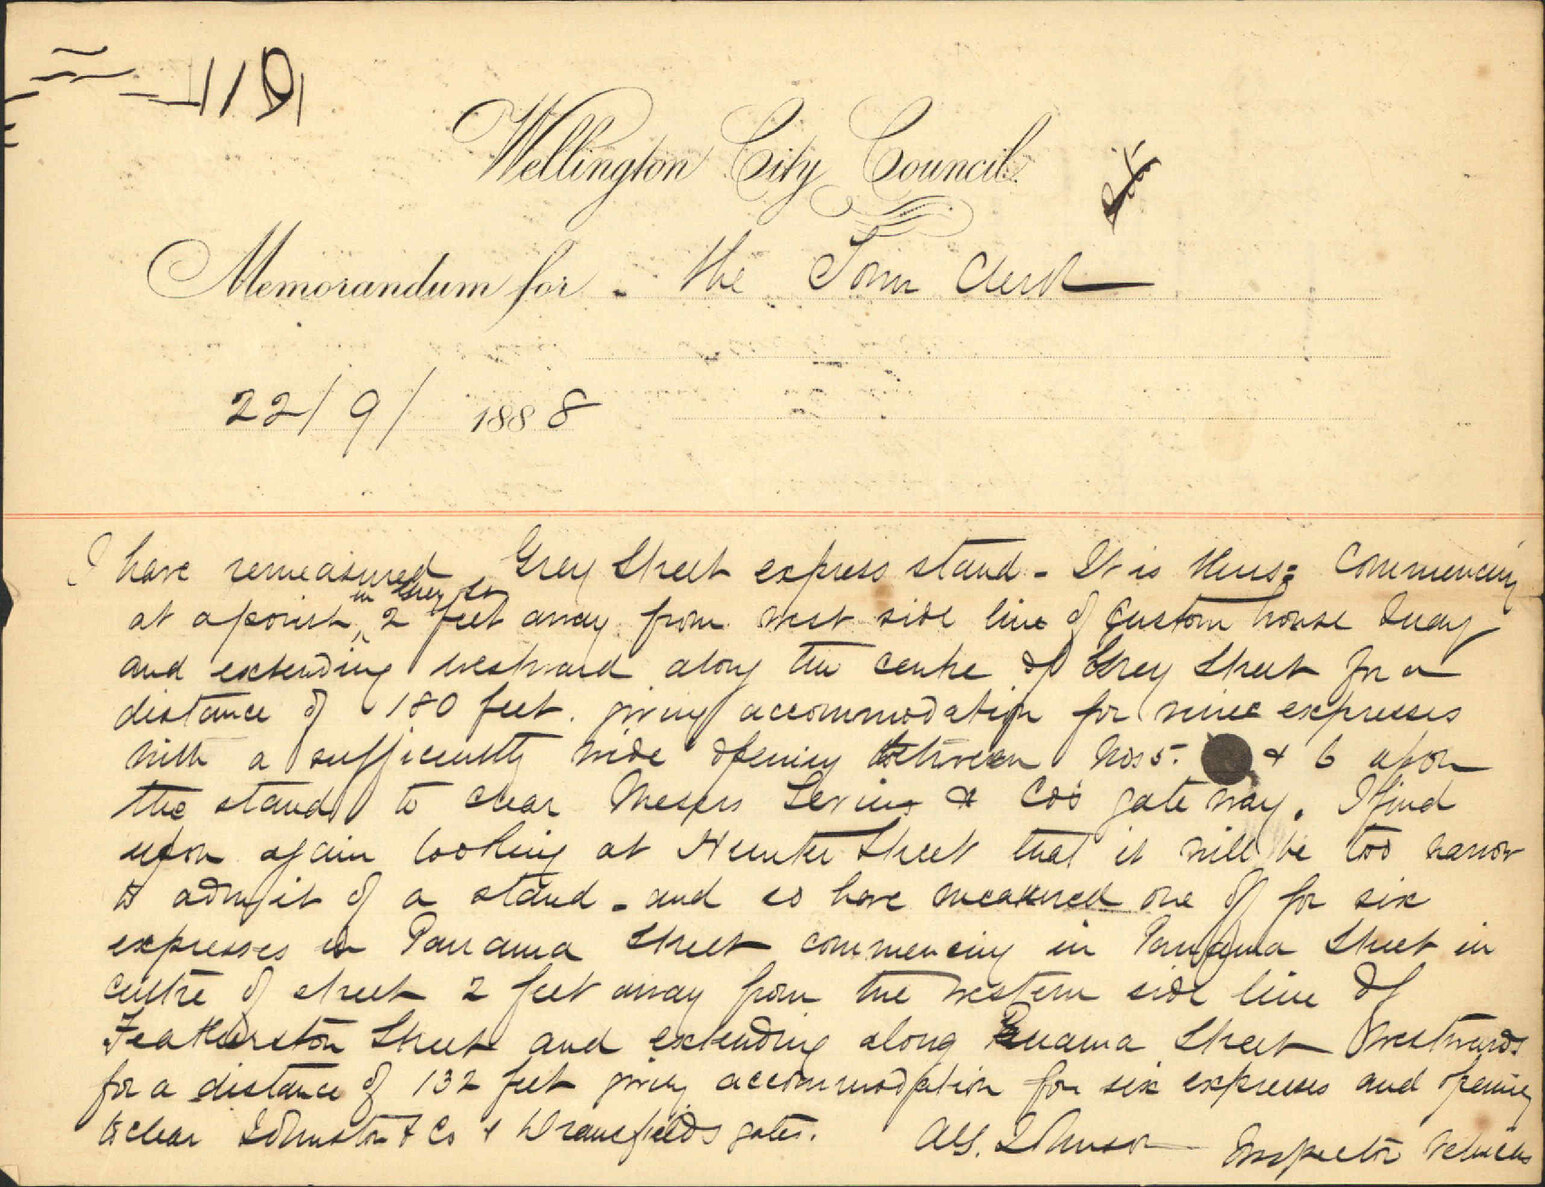 Wellington City Council
Memorandum for the Town Clerk
22/9/1888
I have remeasured Grey Street express stand - It is thus: Commencing
in Grey St
at a point 2 feet away from west side line of Custom house Quay
and extending westward along the centre of Grey Street for a
distance of 180 feet. giving accommodation for nine expresses
with a sufficiently wide opening between Nos 5. & 6 upon
the stand to clear Messrs Levins & Co's gate way. I find
upon again looking at Hunter Street that it will be too narrow
to admit of a stand - and so have measured one off for six
expresses in Panama Street commencing in Panama Street in
centre of street 2 feet away from the western side line of
Featherston Street and extending along Panama Street Westwards
for a distance of 132 feet giving accommodation for six expresses and opening
to clear Johnston & Co & Dransfields gates. Johnson Inspector Vehicles